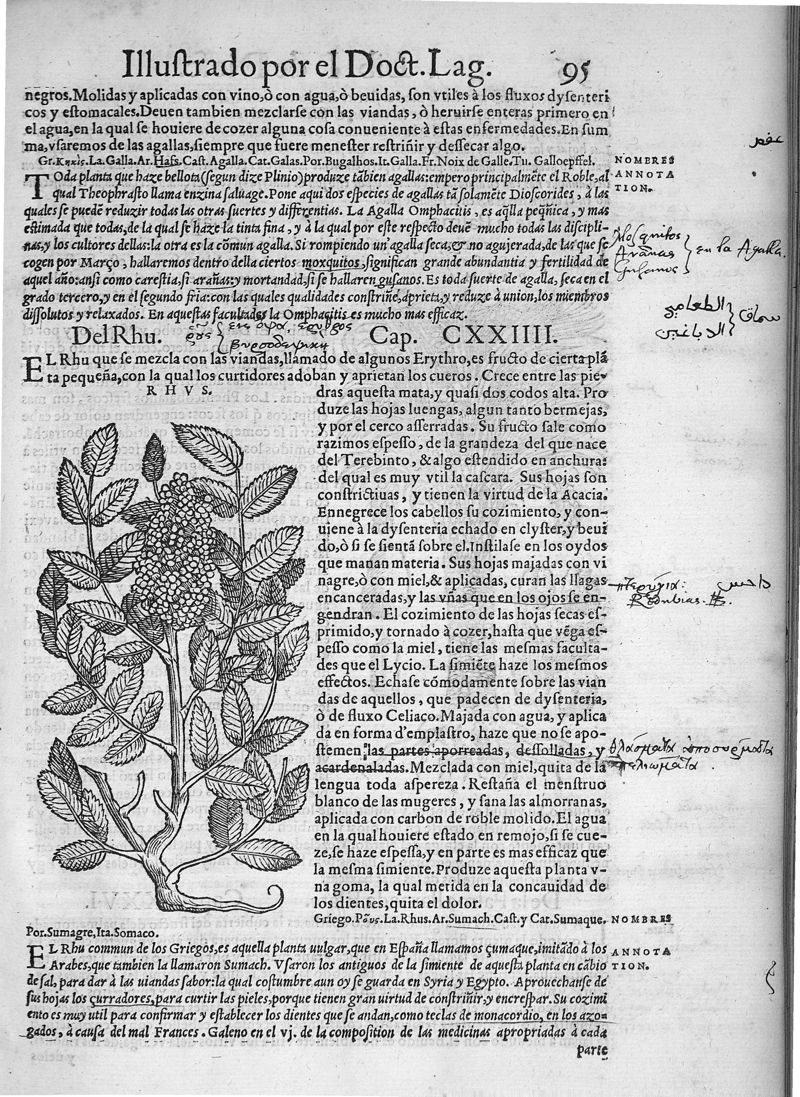 Illuſtrado por el Doct. Lag. 95
negros. Molidas y aplicadas con vino, ò con agua, ò beuidas, ſon vtiles à los fluxos dyſenteri
cos y eſtomacales. Deuen tambien mezclarſe con las viandas, ò heruirſe enteras primero en
el agua, en la qual ſe houiere de cozer alguna coſa conueniente à eſtas enfermedades. En ſum
ma, vſaremos de las agallas, ſiempre que fuere meneſter reſtriñir y deſſecar algo.
عفص
Gr. Κηκὶς. La. Galla. Ar. Hafs. Caſt. Agalla. Cat. Galas. Por. Bugalhos. It. Galla. Fr. Noix de Galle. Tu. Galloepffel.
NOMBRES
ANNOTA
TION.
TOda planta que haze bellota (ſegun dize Plinio) produze tãbien agallas: empero principalmẽte el Roble, al
qual Theophraſto llama enzina ſaluage. Pone aqui dos eſpecies de agallas tã ſolamẽte Dioſcorides, à las
quales ſe puedẽ reduzir todas las otras ſuertes y differentias. La Agalla Omphacitis, es aq̃lla peq̃ñica, y mas
eſtimada que todas, de la qual ſe haze la tinta fina, y à la qual por eſte reſpecto deuẽ mucho todas las diſcipli-
nas, y los cultores dellas: la otra es la comun agalla. Si rompiendo un'agalla ſeca, & no agujerada, de las que ſe
cogen por Março, hallaremos dentro della ciertos moxquitos, ſignifican grande abundantia y fertilidad de
aquel año: anſi como careſtia, ſi arañas: y mortandad, ſi ſe hallaren guſanos. Es toda ſuerte de agalla, ſeca en el
grado tercero, y en el ſegundo fria: con las quales qualidades conſtriñe, aprieta, y reduze à union, los miembros
diſſolutos y relaxados. En aqueſtas facultades la Omphacitis es mucho mas efficaz.
Moſquitos
Arañas
Guſanos
en la Agalla.
Del Rhu. Cap. CXXIIII.
سماق
الطعامي
الدباغين
EL Rhu que ſe mezcla con las viandas, llamado de algunos Erythro, es fructo de cierta plã
ta pequeña, con la qual los curtidores adoban y aprietan los cueros. Crece entre las pie-
RHVS.
dras aqueſta mata, y quaſi dos codos alta. Pro
duze las hojas luengas, algun tanto bermejas,
y por el cerco aſſerradas. Su fructo ſale como
razimos eſpeſſo, de la grandeza del que nace
del Terebinto, & algo eſtendido en anchura:
del qual es muy vtil la caſcara. Sus hojas ſon
conſtrictiuas, y tienen la virtud de la Acacia.
Ennegrece los cabellos ſu cozimiento, y con-
uiene à la dyſenteria echado en clyſter, y beui
do, ò ſi ſe ſientã ſobre el. Inſtilaſe en los oydos
que manan materia. Sus hojas majadas con vi
nagre, ò con miel, & aplicadas, curan las llagas
encanceradas, y las vñas que en los ojos ſe en-
gendran. El cozimiento de las hojas ſecas eſ-
primido, y tornado à cozer, haſta que vẽga eſ-
peſſo como la miel, tiene las meſmas faculta-
des que el Lycio. La ſimiẽte haze los meſmos
effectos. Echaſe cómodamente ſobre las vian
das de aquellos, que padecen de dyſenteria,
ò de fluxo Celiaco. Majada con agua, y aplica
da en forma d'emplaſtro, haze que no ſe apo-
ſtemen las partes aporreadas, deſſolladas, y
acardenaladas. Mezclada con miel, quita de la
lengua toda aſpereza. Reſtaña el menſtruo
blanco de las mugeres, y ſana las almorranas,
aplicada con carbon de roble molido. El agua
en la qual houiere eſtado en remojo, ſi ſe cue-
ze, ſe haze eſpeſſa, y en parte es mas efficaz que
la meſma ſimiente. Produze aqueſta planta v-
na goma, la qual metida en la concauidad de
los dientes, quita el dolor.
πτερύγια:
داحس
θλάσματα ἀποσύρματα
πελιώματα.
Griego. Ροῦς. La. Rhus. Ar. Sumach. Caſt. y Cat. Sumaque.
NOMBRES
Por. Sumagre, Ita. Somaco.
EL Rhu commun de los Griegos, es aquella planta uulgar, que en Eſpaña llamamos çumaque, imitãdo à los
ANNOTA
TION.
Arabes, que tambien la llamaron Sumach. Vſaron los antiguos de la ſimiente de aqueſta planta en cãbio
de ſal, para dar à las uiandas ſabor: la qual coſtumbre aun oy ſe guarda en Syria y Egypto. Aprouechanſe de
ſus hojas los çurradores, para curtir las pieles, porque tienen gran uirtud de conſtriñir, y encreſpar. Su cozimi
ento es muy util para confirmar y eſtablecer los dientes que ſe andan, como teclas de monacordio, en los azo-
gados, à cauſa del mal Frances. Galeno en el vj. de la compoſition de las medicinas apropriadas à cada
parte